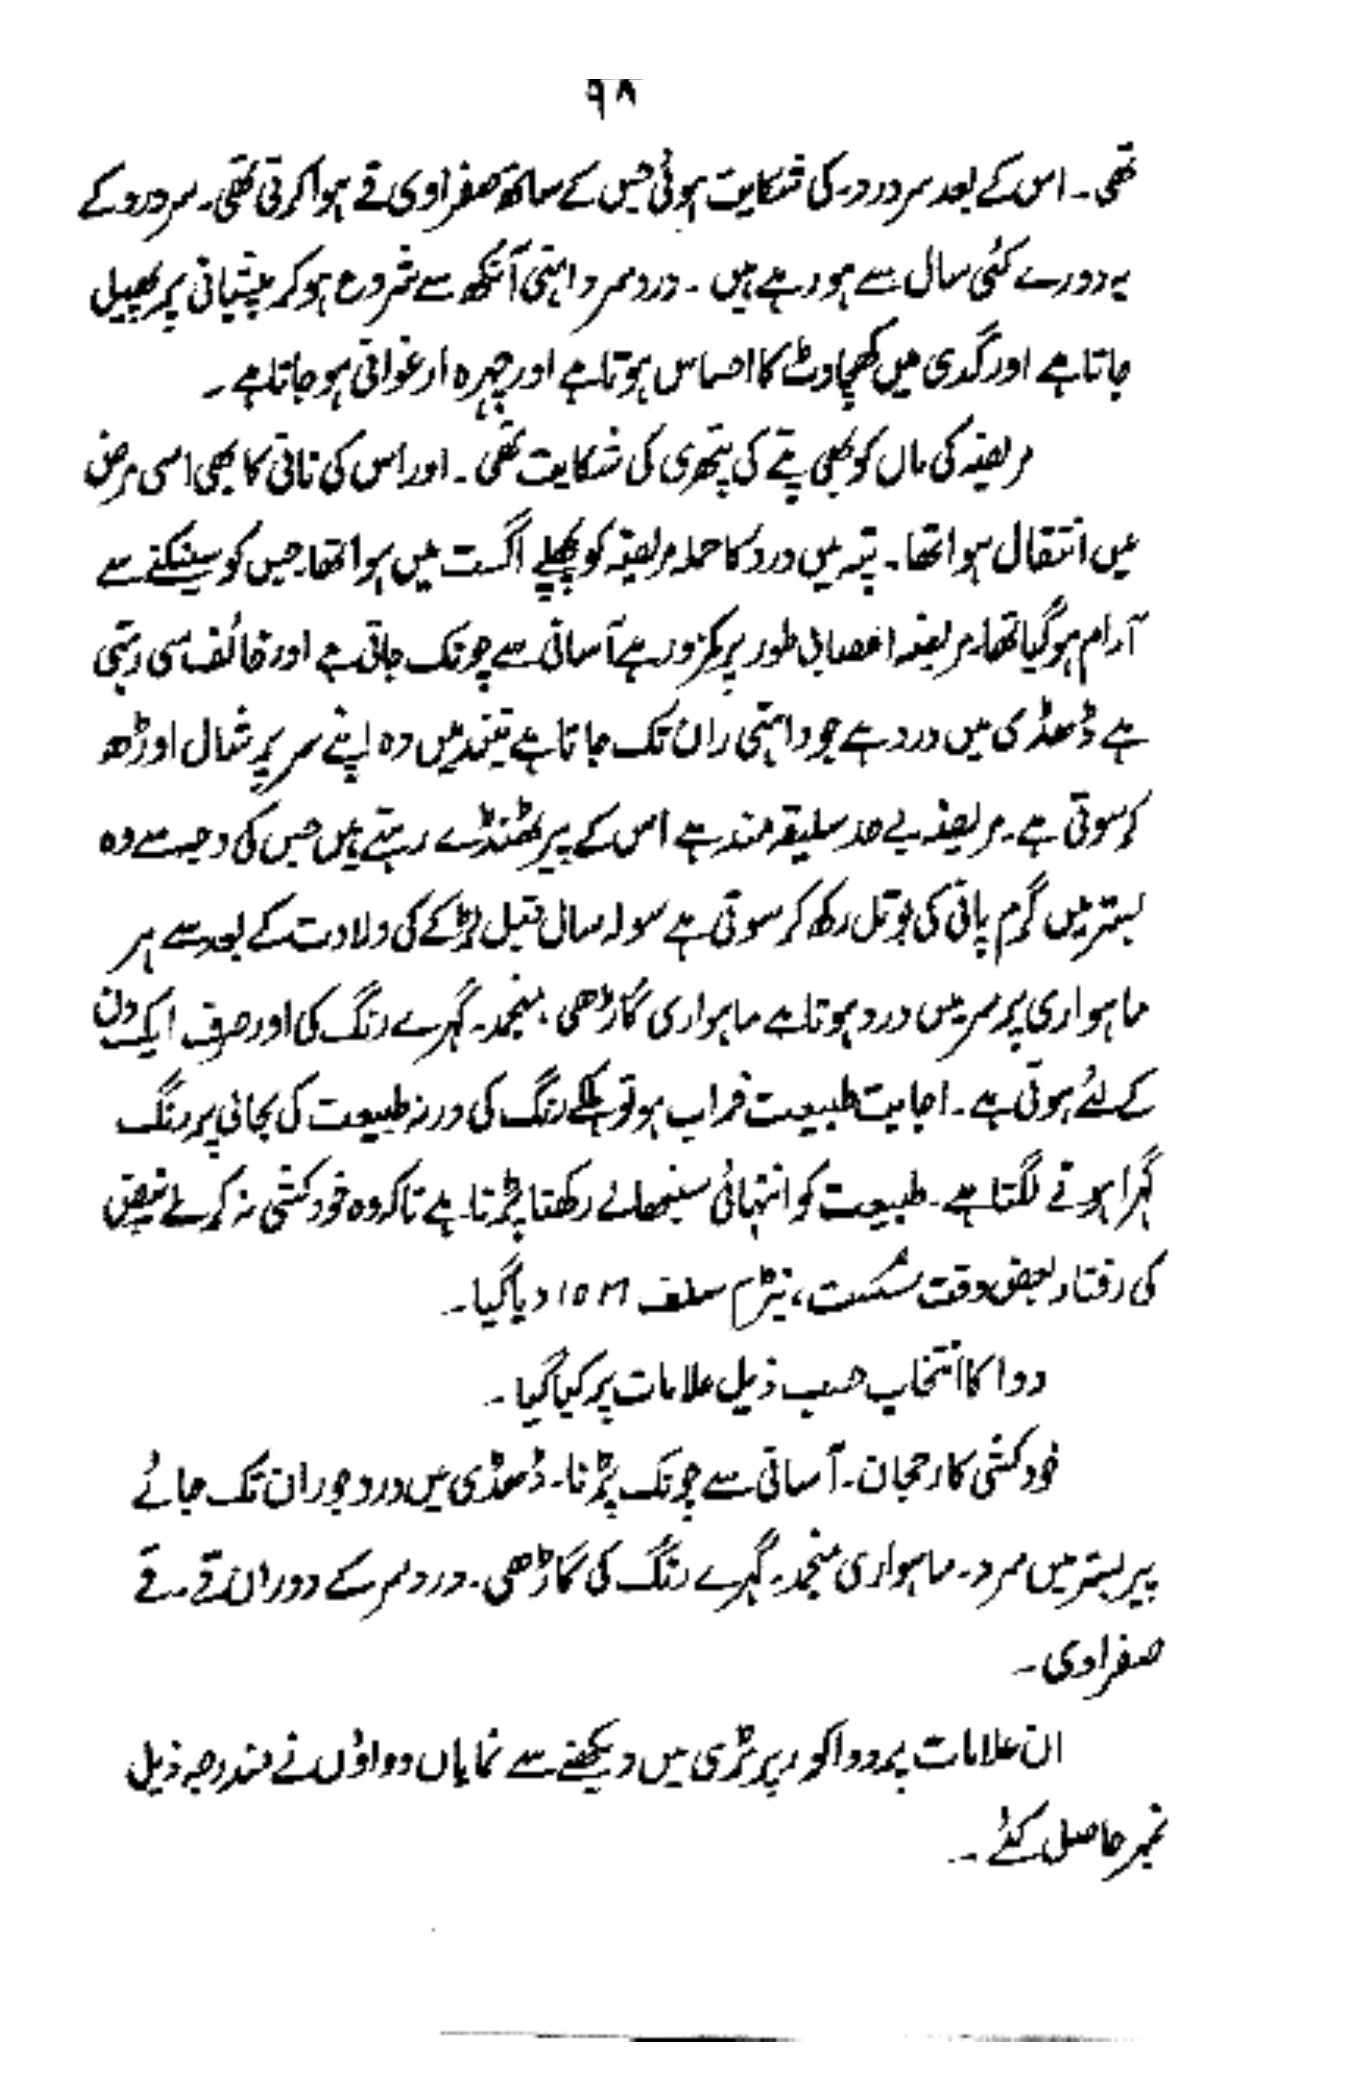 ۹۸
تھی۔ اس کے بعد سر درد کی شکایت ہوئی جس کے ساتھ صفراوی قے ہوا کرتی تھی۔ سر درد کے
یہ دورے کئی سال سے ہو رہے ہیں ۔ درد سر داہنی آنکھ سے شروع ہو کر پیشانی پر پھیل
جاتا ہے اور گدی میں کھچاوٹ کا احساس ہوتا ہے اور چہرہ ارغوانی ہو جاتا ہے ۔
مریضہ کی ماں کو بھی پتے کی پتھری کی شکایت تھی ۔ اور اس کی نانی کا بھی اسی مرض
میں انتقال ہوا تھا ۔ پتہ میں درد کا حملہ مریضہ کو پچھلے اگست میں ہوا تھا جس کو سینکنے سے
آرام ہو گیا تھا۔ مریضہ اعصابی طور پر کمزور ہے آسانی سے چونک جاتی ہے اور خائف سی رہتی
ہے ڈھڈی میں درد ہے جو داہنی ران تک جاتا ہے نیند میں وہ اپنے سر پر شال اوڑھ
کر سوتی ہے۔ مریضہ بے حد سلیقہ مند ہے اس کے پیر ٹھنڈے رہتے ہیں جس کی وجہ سے وہ
بستر میں گرم پانی کی بوتل رکھ کر سوتی ہے سولہ سال قبل لڑکے کی ولادت کے بعد سے ہر
ماہواری پر سر میں درد ہوتا ہے ماہواری گاڑھی ، منجمد۔ گہرے رنگ کی اور صرف ایک دن
کے لئے ہوتی ہے ۔ اجابت طبیعت خراب ہو تو ہلکے رنگ کی ورنہ طبیعت کی بحالی پر رنگ
گہرا ہونے لگتا ہے ۔ طبیعت کو انتہائی سنبھالے رکھنا پڑتا ہے تاکہ وہ خودکشی نہ کر لے نبض
کی رفتار بعض وقت سست ، نیٹرم سلف ۱۰M دیا گیا ۔
دوا کا انتخاب حسب ذیل علامات پر کیا گیا ۔
خودکشی کا رحجان ۔ آسانی سے چونک پڑنا ۔ ڈھڈی میں درد جو ران تک جائے
پیر بستر میں سرد ۔ ماہواری منجمد ۔ گہرے رنگ کی گاڑھی ۔ درد سر کے دوران قے ۔ قے
صفراوی ۔
ان علامات پر دوا کو ریپرٹری میں دیکھنے سے نمایاں دواؤں نے مندرجہ ذیل
نمبر حاصل کئے ۔